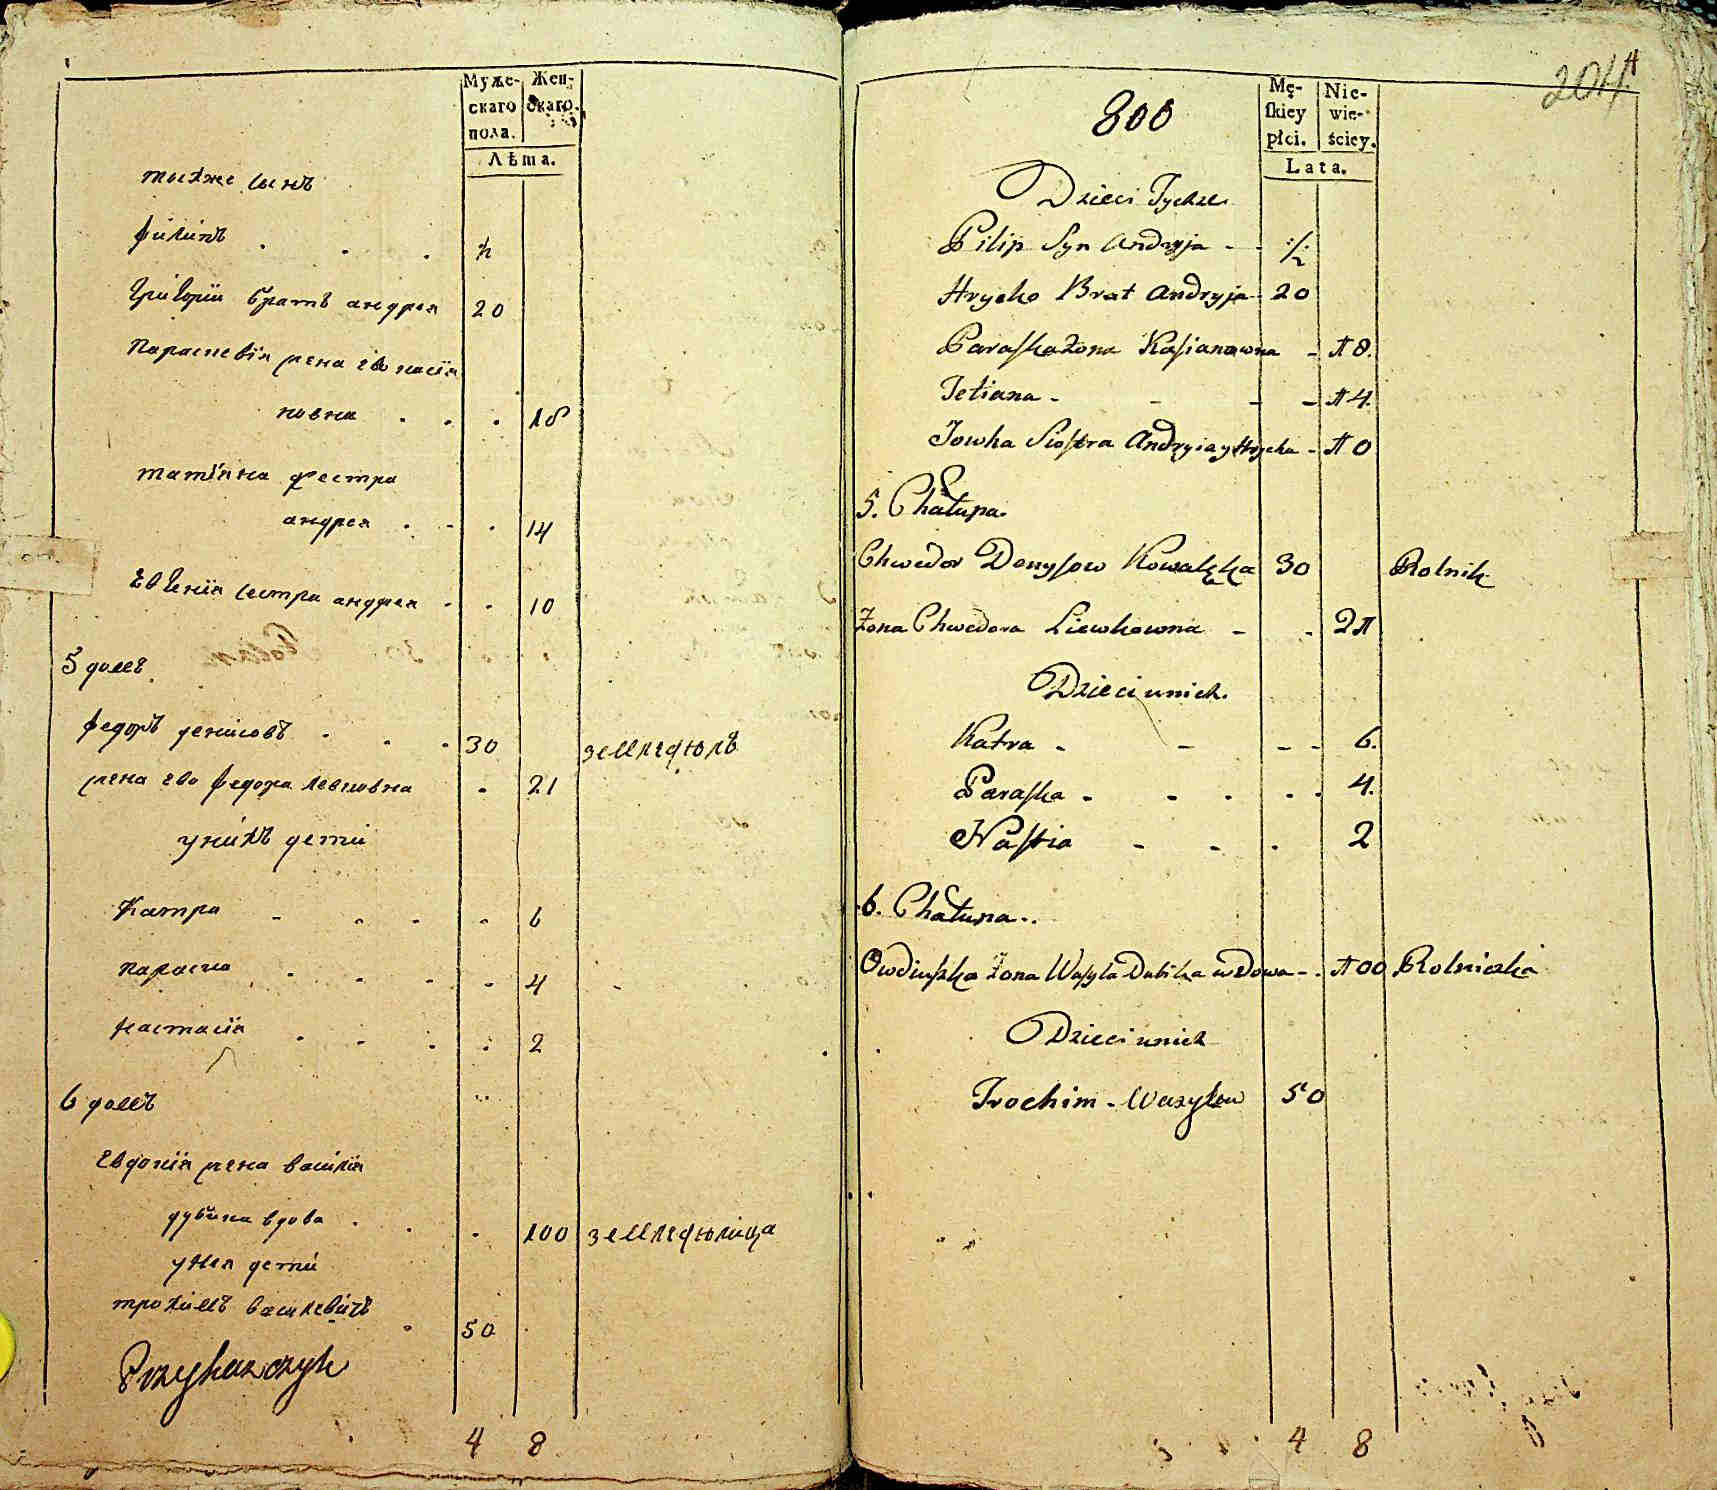 Муже-
скаго
пола.
Жен-
скаго.
Лѣта.
тыхже сынъ
филипъ ½
григории братъ андрея 20
параскевія жена ево касия
новна 18
татіяна сестра
андрея 14
Евгенія сестра андрея 10
5 домъ
федоръ денисовъ 30 земледелъ
жена ево федора левковна 21
унихъ дети
Катра 6
параска 4
настасія 2
6 домъ
евдокія жена василія
дубика вдова 100 земледелица
унея дети
трохимъ василевичъ 50
Przykazczyk
4 8
800
204
Mę-
skiey
płci.
Nie-
wie-
ściey.
Lata.
Dzieci Tychże
Pilip Syn Andryja ½
Hrycko Brat Andryja 20
Paraska żona Kasianowna 18.
Tetiana 14.
Jowka Siostra Andryia y Hrycka 10
5. Chałupa.
Chwedor Denysow Kowalęka 30 Rolnik
Żona Chwedora Liewkowna 21
Dzieci unich.
Katra 6.
Paraska 4.
Nastia 2
6. Chałupa..
Owdiuszka żona Wasyla Dubika wdowa 100 Rolniczka
Dzieci unich
Trochim Wasylow 50
4 8